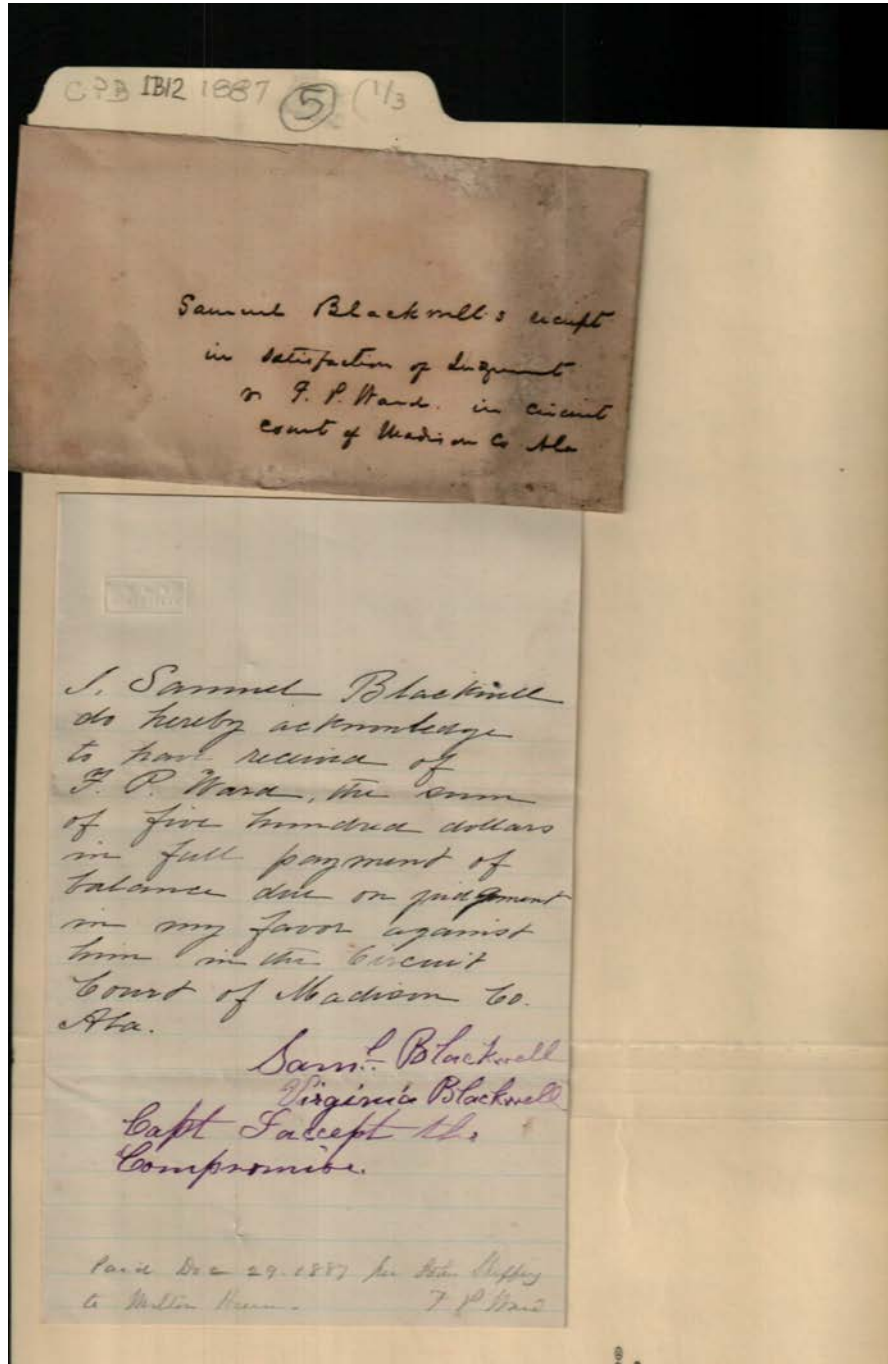 CPB IB12 1887 5 (1/3
Samuel Blackwell's receipt
in satisfaction of Judgment
v F. P. Ward. in circuit
court of Madison Co Ala
I, Samuel Blackwell
do hereby acknowledge
to have received of
F. P. Ward, the sum
of five hundred dollars
in full payment of
balance due on judgment
in my favor against
him in the Circuit
Court of Madison Co.
Ala.
Saml. Blackwell
Virginia Blackwell
Capt I accept the
Compromise.
Paid Dec 29. 1887
to Milton F P Ward